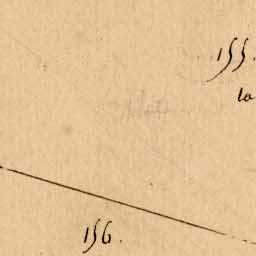 155.
la
156.